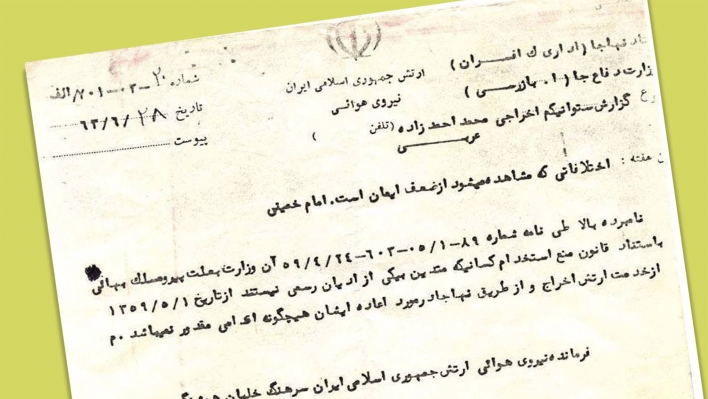 شماره ۲۰-۰۳-۷۰۱/الف
تاریخ ۶۳/۶/۲۸
پیوست
ارتش جمهوری اسلامی ایران
نیروی هوائی
(تلفن )
نهاجا (اداری ک افسران)
وزارت دفاع جا (۱۰ بازرسی)
گزارش ستوانیکم اخراجی محمد احمدزاده
عربی
هفته : اختلافاتی که مشاهده میشود از ضعف ایمان است. امام خمینی
نامبرده بالا طی نامه شماره ۸۹-۰۵/۱-۶۰۳-۵۹/۴/۲۴ آن وزارت بعلت پیرو مسلک بهائی
باستناد قانون منع استخدام کسانیکه متدین بیکی از ادیان رسمی نیستند از تاریخ ۱۳۵۹/۵/۱
از خدمت ارتش اخراج و از طریق نهاجا در مورد اعاده ایشان هیچگونه اقدامی مقدور نمیباشد. م
فرمانده نیروی هوائی ارتش جمهوری اسلامی ایران سرهنگ خلبان